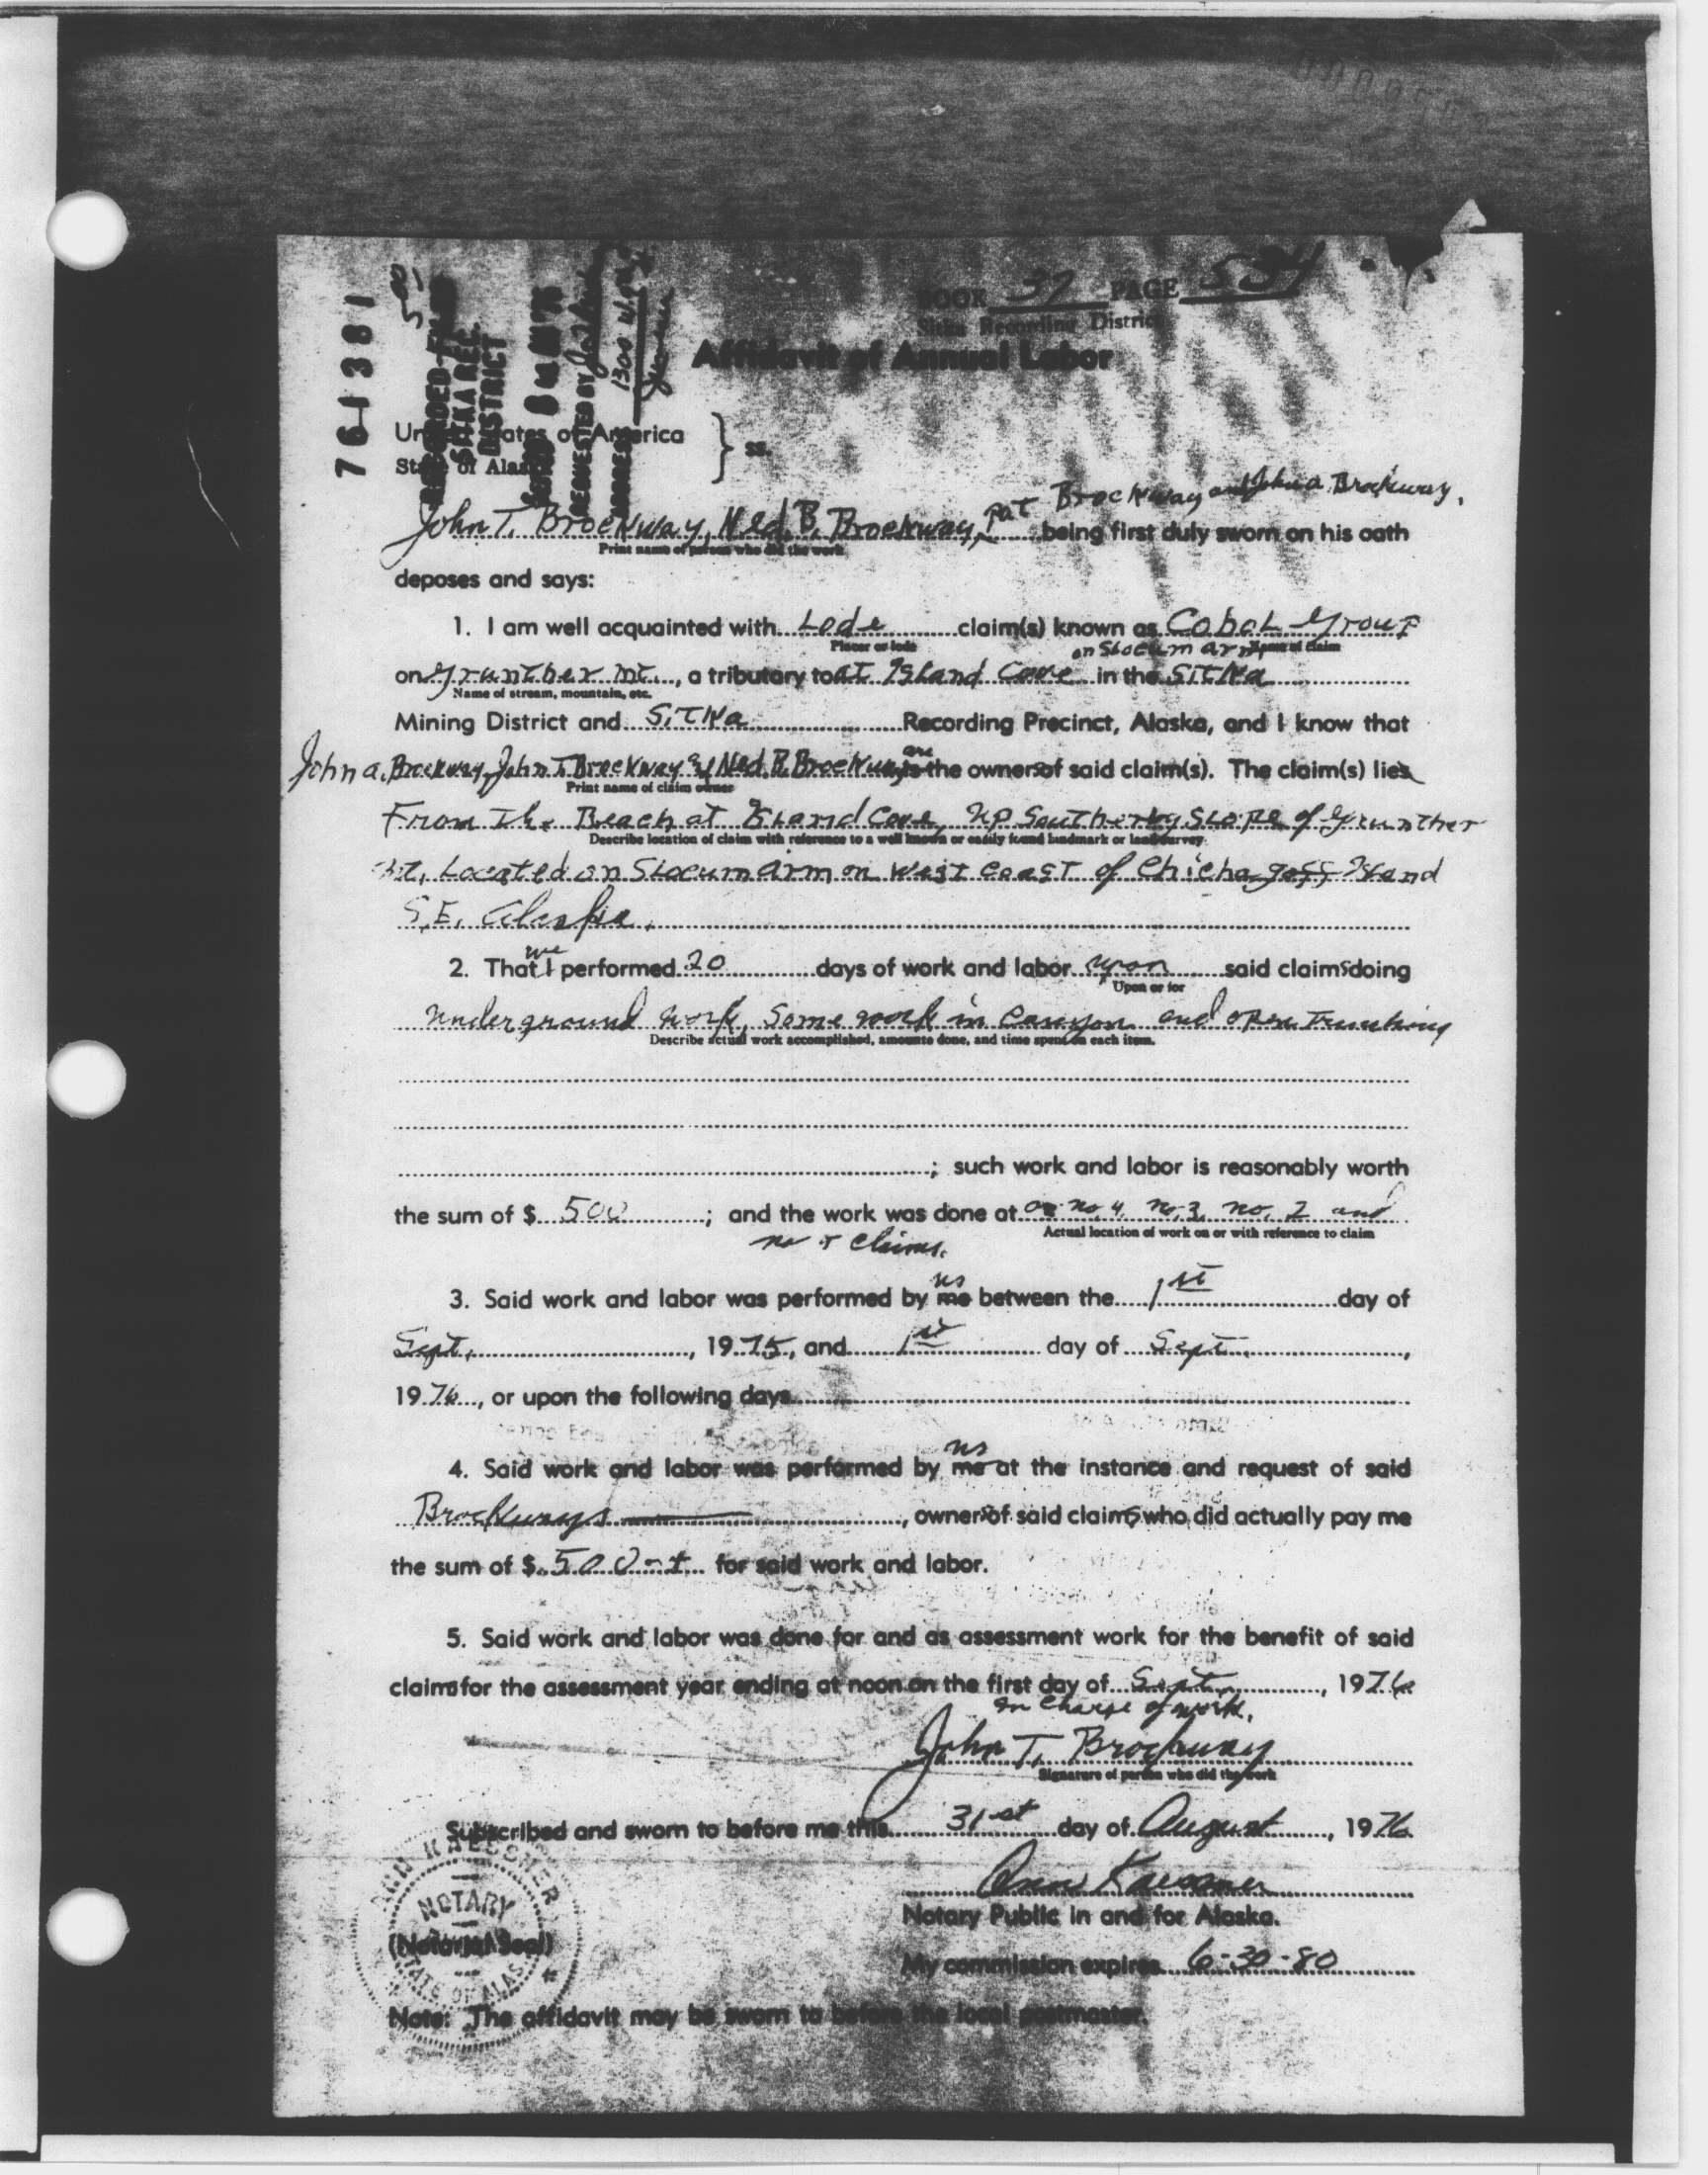 BOOK 37 PAGE 534
Sitka Recording District
Affidavit of Annual Labor
76-1381
RECORDED-FILED
SITKA REC.
DISTRICT
REQUESTED BY
ADDRESS
United States of America
State of Alaska
} ss.
Pat Brockway and John A. Brockway,
John T. Brockway, Ned. B. Brockway, being first duly sworn on his oath
Print name of person who did the work
deposes and says:
1. I am well acquainted with Lode claim(s) known as Cobol Group
Placer or lode Name of claim
on Slocum Arm
on Grunther Mt., a tributary to at Island Cove in the Sitka
Name of stream, mountain, etc.
Mining District and Sitka Recording Precinct, Alaska, and I know that
are
John A. Brockway, John T. Brockway & Ned. B. Brockway is the owners of said claim(s). The claim(s) lies
Print name of claim owner
From The Beach at Island Cove, up Southerly Slope of Grunther
Describe location of claim with reference to a well known or easily found landmark or land survey.
Mt, Located on Slocum Arm on West Coast of Chichagoff Island
S.E. Alaska.
we
2. That I performed 20 days of work and labor upon said claims doing
Upon or for
underground work, Some work in Canyon and open Trenching
Describe actual work accomplished, amounts done, and time spent on each item.
; such work and labor is reasonably worth
the sum of $ 500 ; and the work was done at on no. 4, no. 3, no. 2 and
Actual location of work on or with reference to claim
claims.
us
3. Said work and labor was performed by me between the 1st day of
Sept., 1975, and 1st day of Sept.,
1976, or upon the following days
us
4. Said work and labor was performed by me at the instance and request of said
Brockways, owners of said claims who did actually pay me
the sum of $ 500 for said work and labor.
5. Said work and labor was done for and as assessment work for the benefit of said
claims for the assessment year ending at noon on the first day of Sept., 1976
In Charge of work.
John T. Brockway
Signature of person who did the work
Subscribed and sworn to before me this 31st day of August, 1976
Ann Kaesomer
Notary Public in and for Alaska.
My commission expires 6-30-80
NOTARY
(Notarial Seal)
STATE OF ALASKA
Note: The affidavit may be sworn to before the local postmaster.